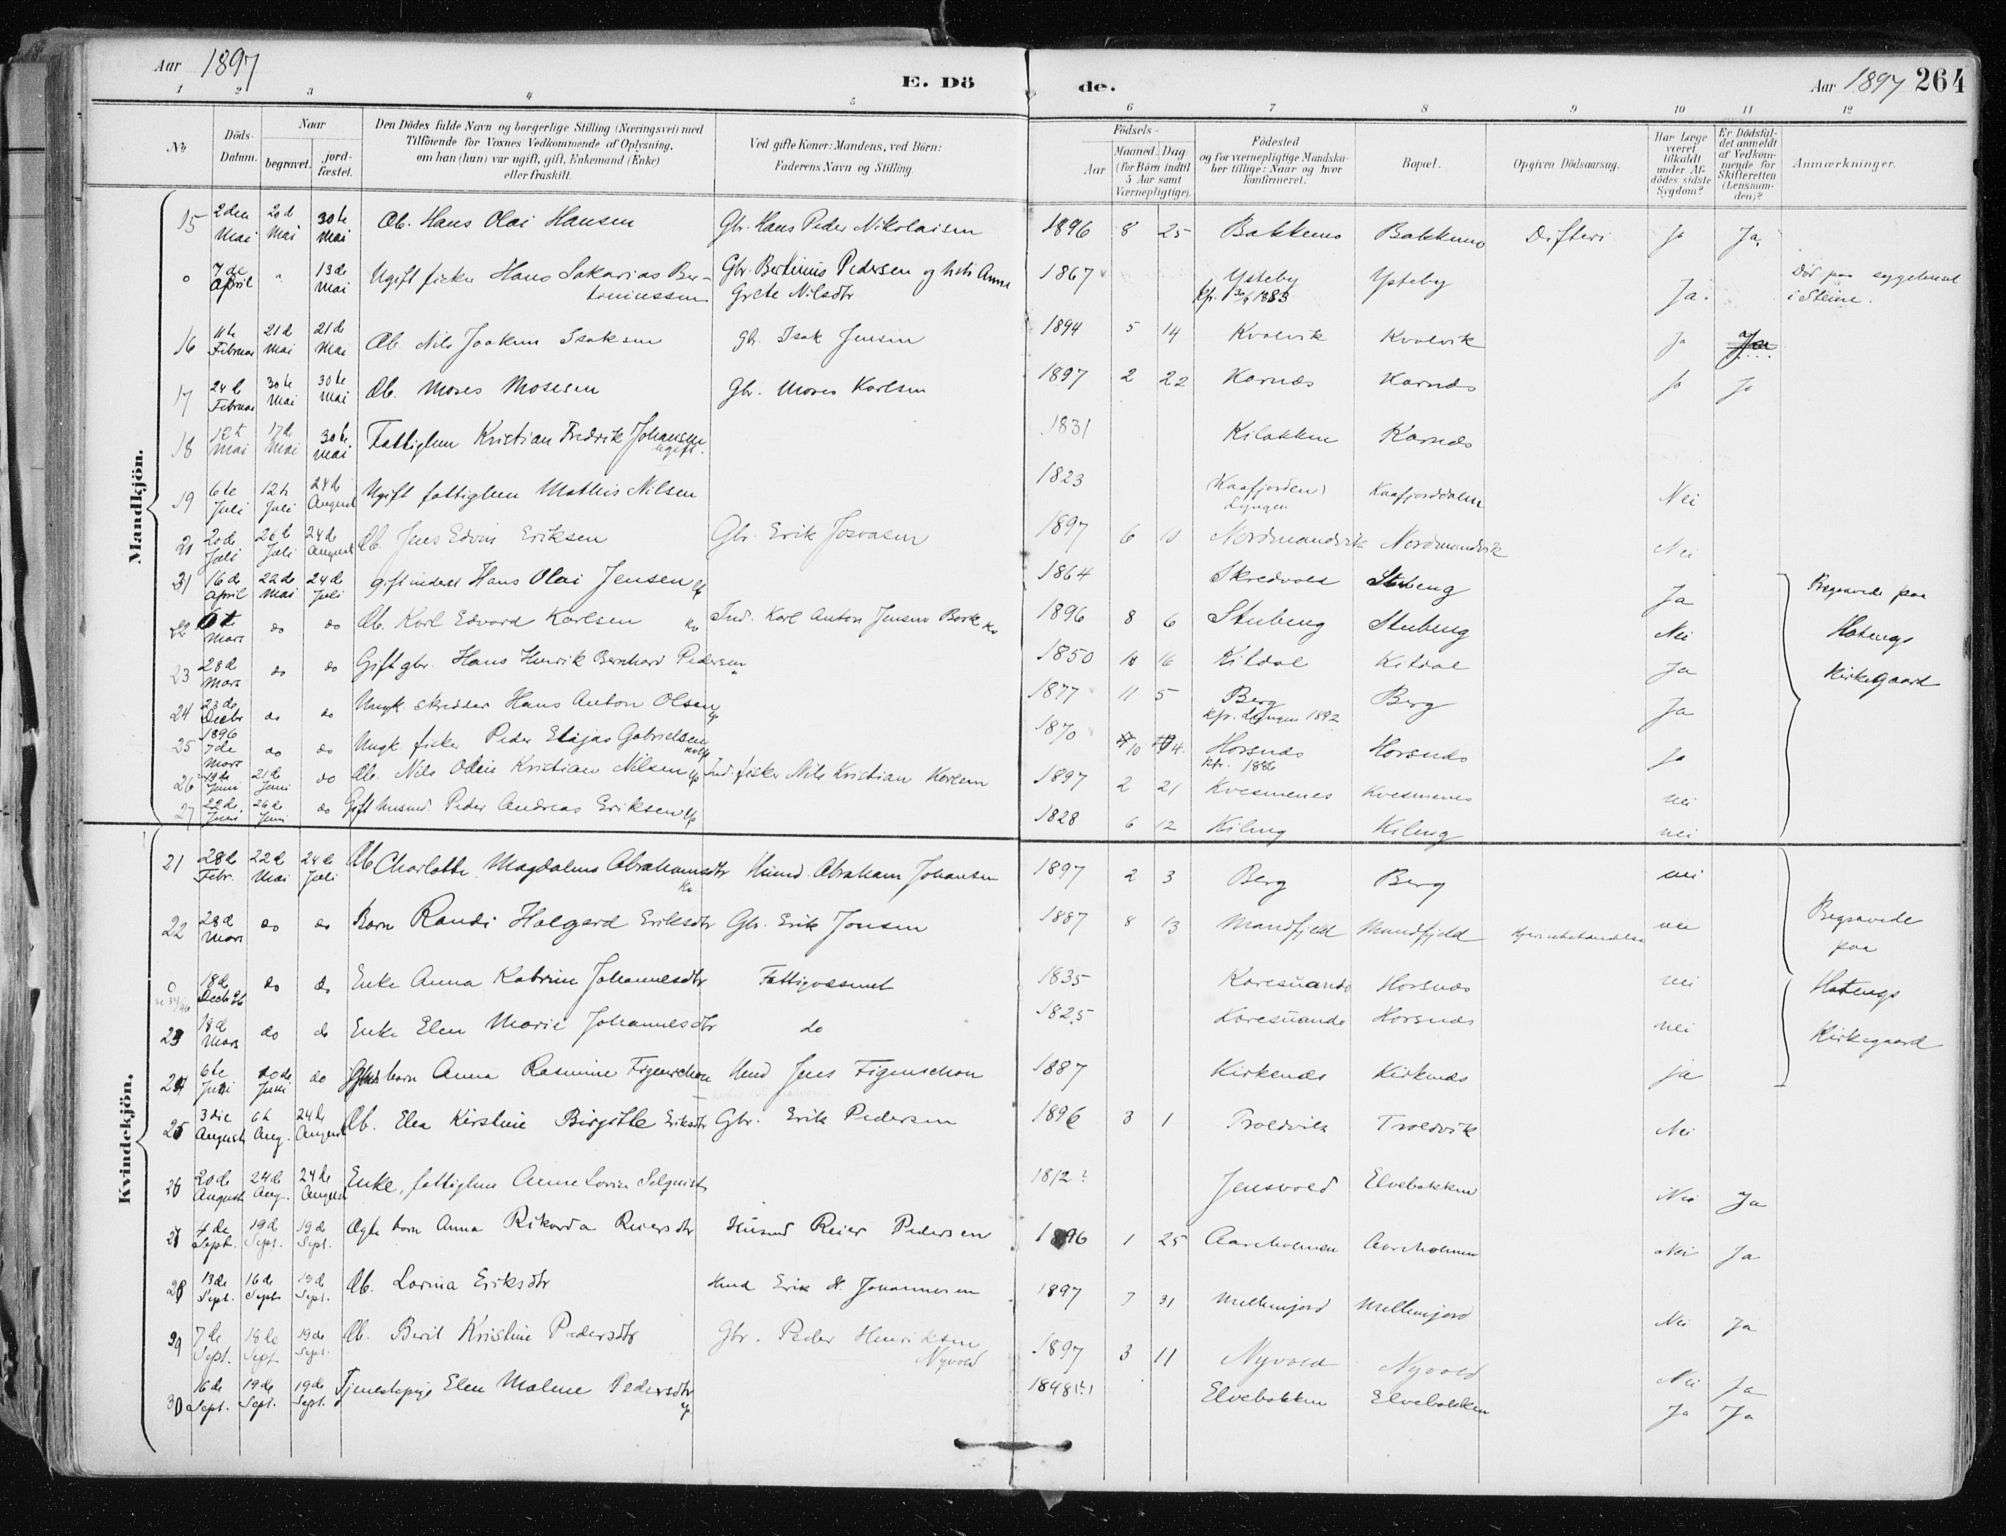 Aar 1897
E. Dö
de.
Aar 1897 264
1 2 3 4 5 6 7 8 9 10 11 12
No. Döds-Datum. Naar begravet. jord-fæstet. Den Dödes fulde Navn og borgerlige Stilling (Næringsvei) med Tilföiende for Voxnes Vedkommende af Oplysning, om han (hun) var ugift, gift, Enkemand (Enke) eller fraskilt. Ved gifte Koner: Mandens, ved Börn: Faderens Navn og Stilling. Födsels- Aar Maaned. Dag. (for Börn indtil 5 Aar samt Værnepligtige). Födested og for værnepligtige Mandskaber tillige: Naar og hvor konfirmeret. Bopæl. Opgiven Dödsaarsag. Har Læge været tilkaldt under Afdödes sidste Sygdom? Er Dödsfaldet anmeldt af Vedkommende for Skifteretten (Lensmanden)? Anmærkninger.
Mandkjön.
15 2den Mai 20d Mai 30te Mai Æb. Hans Olai Hansen Gbr. Hans Peder Nikolaisen 1896 8 25 Bakkemo Bakkemo Difteri Ja Ja,
0 7de April " 13de Mai Ugift fisker Hans Sakarias Bertinussen Gbr. Bertinus Pedersen og Anne Grete Nilsdtr 1867 Ysteby 1883 Ysteby Ja. Död paa sygehuset i Steine.
16 11te Februar 21d Mai 21d Mai Æb. Nils Joakim Isaksen Gb. Isak Jensen 1894 5 14 Kvalvik Kvalvik Ja Ja
17 24d Februar 30te Mai 30te Mai Æb. Moses Mosesen Gbr. Moses Karlsen 1897 2 22 Karnæs Karnæs Ja Ja
18 12te Mai 17d Mai 30te Mai Fattiglem Kristian Fredrik Johansen ugift. 1831 Kilbakken Karnæs
19 6te Juli 12te Juli 24d August Ugift fattiglem Mathis Nilsen 1823 (Kaafjorden) Lyngen Kaafjorddalen Nei
20de Juli 26te Juli 24d August Æb. Jens Edvin Eriksen Gbr. Erik Josvasen 1897 6 10 Nordmandvik Nordmandvik Nei
16de April 22de Mai 24de Juli gift inderst Hans Olai Jensen 1864 Skredvold Stubeng Ja
22 Mars do do Æb. Karl Edvard Karlsen Ind. Karl Anton Jensen 1896 8 6 Stubeng Stubeng Nei
23 28d Mars do do Gift gbr. Hans Henrik Bernhard Pedersen 1850 16 Kitdal Kitdal Ja
24 23de Decbr 1896 do do Ungk. skredder Hans Anton Olsen 1877 11 5 Berg kfr. Lyngen 1892 Berg Ja
25 7de Mars do do Ungk fisker Peder Elijas Gabrielsen 1870 10 4 Horsnæs kfr. 1886 Horsnæs Ja
26 Juni 21d Juni do Æb. Nils Odin Kristian Nilsen Ind. fisker Nils Kristian 1897 2 21 Kvesmenes Kvesmenes nei
27 22d. Juni 26de Juni do Gift husmd. Peder Andreas Eriksen 1828 6 12 Kileng Kileng nei
Begravede paa Hatengs Kirkegaard
Kvindekjön.
21 28d Febr. 22d Mai 24d Juli Æb Charlotte Magdalena Abrahamsdtr Husmd. Abraham Johansen 1897 2 3 Berg Berg nei
22 28d Mars do do Barn Randi Halgerd Eriksdtr Gbr. Erik Jonsen 1887 8 13 Mandfjeld Mandfjeld nei
0 18d Decb 96 do do Enke Anna Katrine Johannesdtr Fattigvæsenet 1835 Karesuando Horsnæs nei
23 18d Mars do do Enke Elen Marie Johannesdtr do 1825 Karesuando Horsnæs nei
24 6te Juni 20de Juni do barn Anna Rasmine Figenschou Husmd Jens Figenschou 1887 Kirkenæs Kirkenæs ja
Begravede paa Hatengs Kirkegaard
25 3die August 6te Aug. 24de August Æb. Elea Kirstine Birgitte Eriksdtr Gbr. Erik Pedersen 1896 3 1 Troldvik Troldvik Nei
26 20de August 24de Aug. 24de August Enke, fattiglem Anne Lovise Selquist 1812? Jensvold Elvebakken Nei Ja
27 4de Sept. 19d Sept. 19d Sept. Ægte barn Anna Rikarda Reiersdtr Husmd Reier Pedersen 1896 1 25 Aarsholmen Aarsholmen Nei Ja
28 13de Sept. 16de Sept. 19d Sept. Æb. Lovisa Eriksdtr Husmd Erik H. Johannesen 1897 7 31 Mellemjord Mellemjord Nei Ja
29 7de Sept. 18de Sept. 19de Sept. Æb. Berit Kristine Pedersdtr Gbr. Peder Henriksen Nyvold 1897 3 11 Nyvold Nyvold Nei Ja
30 16de Sept. 19de Sept. 19de Sept. Tjenestepige Elen Malene Pedersdtr 1848(?) Elvebakken Elvebakken Ja Ja